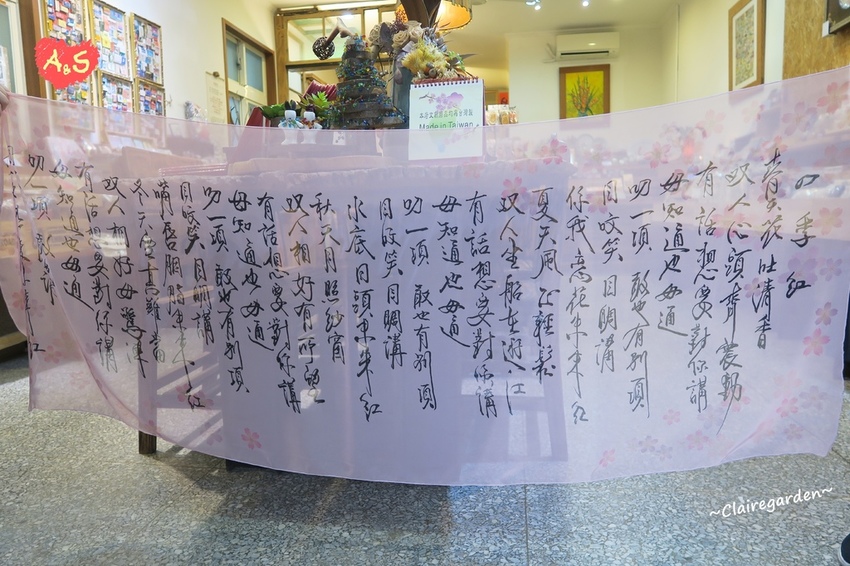 四季紅
春天花吐清香
双人心頭齊震動
有話想要對你講
毋知通也毋通
叨一項 敢也有別項
目咬笑 目睭講
你我 花朱朱紅
夏天風正輕鬆
双人坐船在遊江
有話想要對你講
毋知通也毋通
叨一項 敢也有別項
目咬笑 目睭講
水底日頭朱朱紅
秋天月照紗窗
双人相好有所望
有話想要對你講
毋知通也毋通
叨一項 敢也有別項
目咬笑 目睭講
嘴唇胭脂朱朱紅
冬天 真難當
双人相好毋驚凍
有話想要對你講
毋知通也毋通
叨一項
紅
A&S
Made in Taiwan
~Clairegarden~